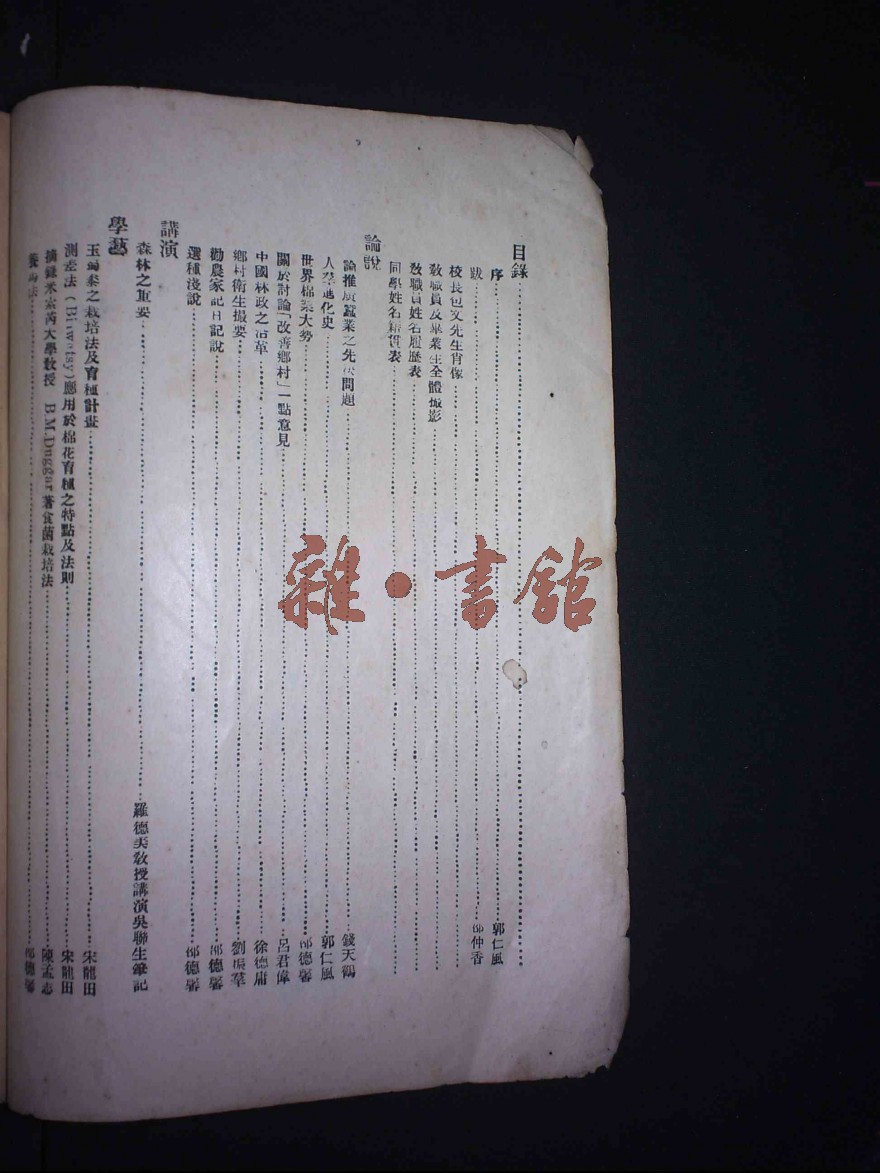 目錄
序 郭仁風
跋 邵仲香
校長包文先生肖像
教職員及畢業生全體撮影
教職員姓名履歷表
同學姓名籍貫表
論說
論推廣蠶業之先決問題 錢天鶴
人羣進化史 郭仁風
世界棉業大勢 邵德馨
關於討論「改善鄉村」一點意見 呂君偉
中國林政之沿革 徐德庸
鄉村衛生撮要 劉振羣
勸農家記日記說 邵德馨
選種淺說 邵德馨
講演
森林之重要 羅德美教授講演吳聯生筆記
學藝
玉蜀黍之栽培法及育種計畫 宋龍田
測差法 應用於棉花育種之特點及法則 宋龍田
摘錄米索芮大學教授 B.M.Duggar著食菌栽培法 陳孟志
養 法 邵德馨
雜·書館